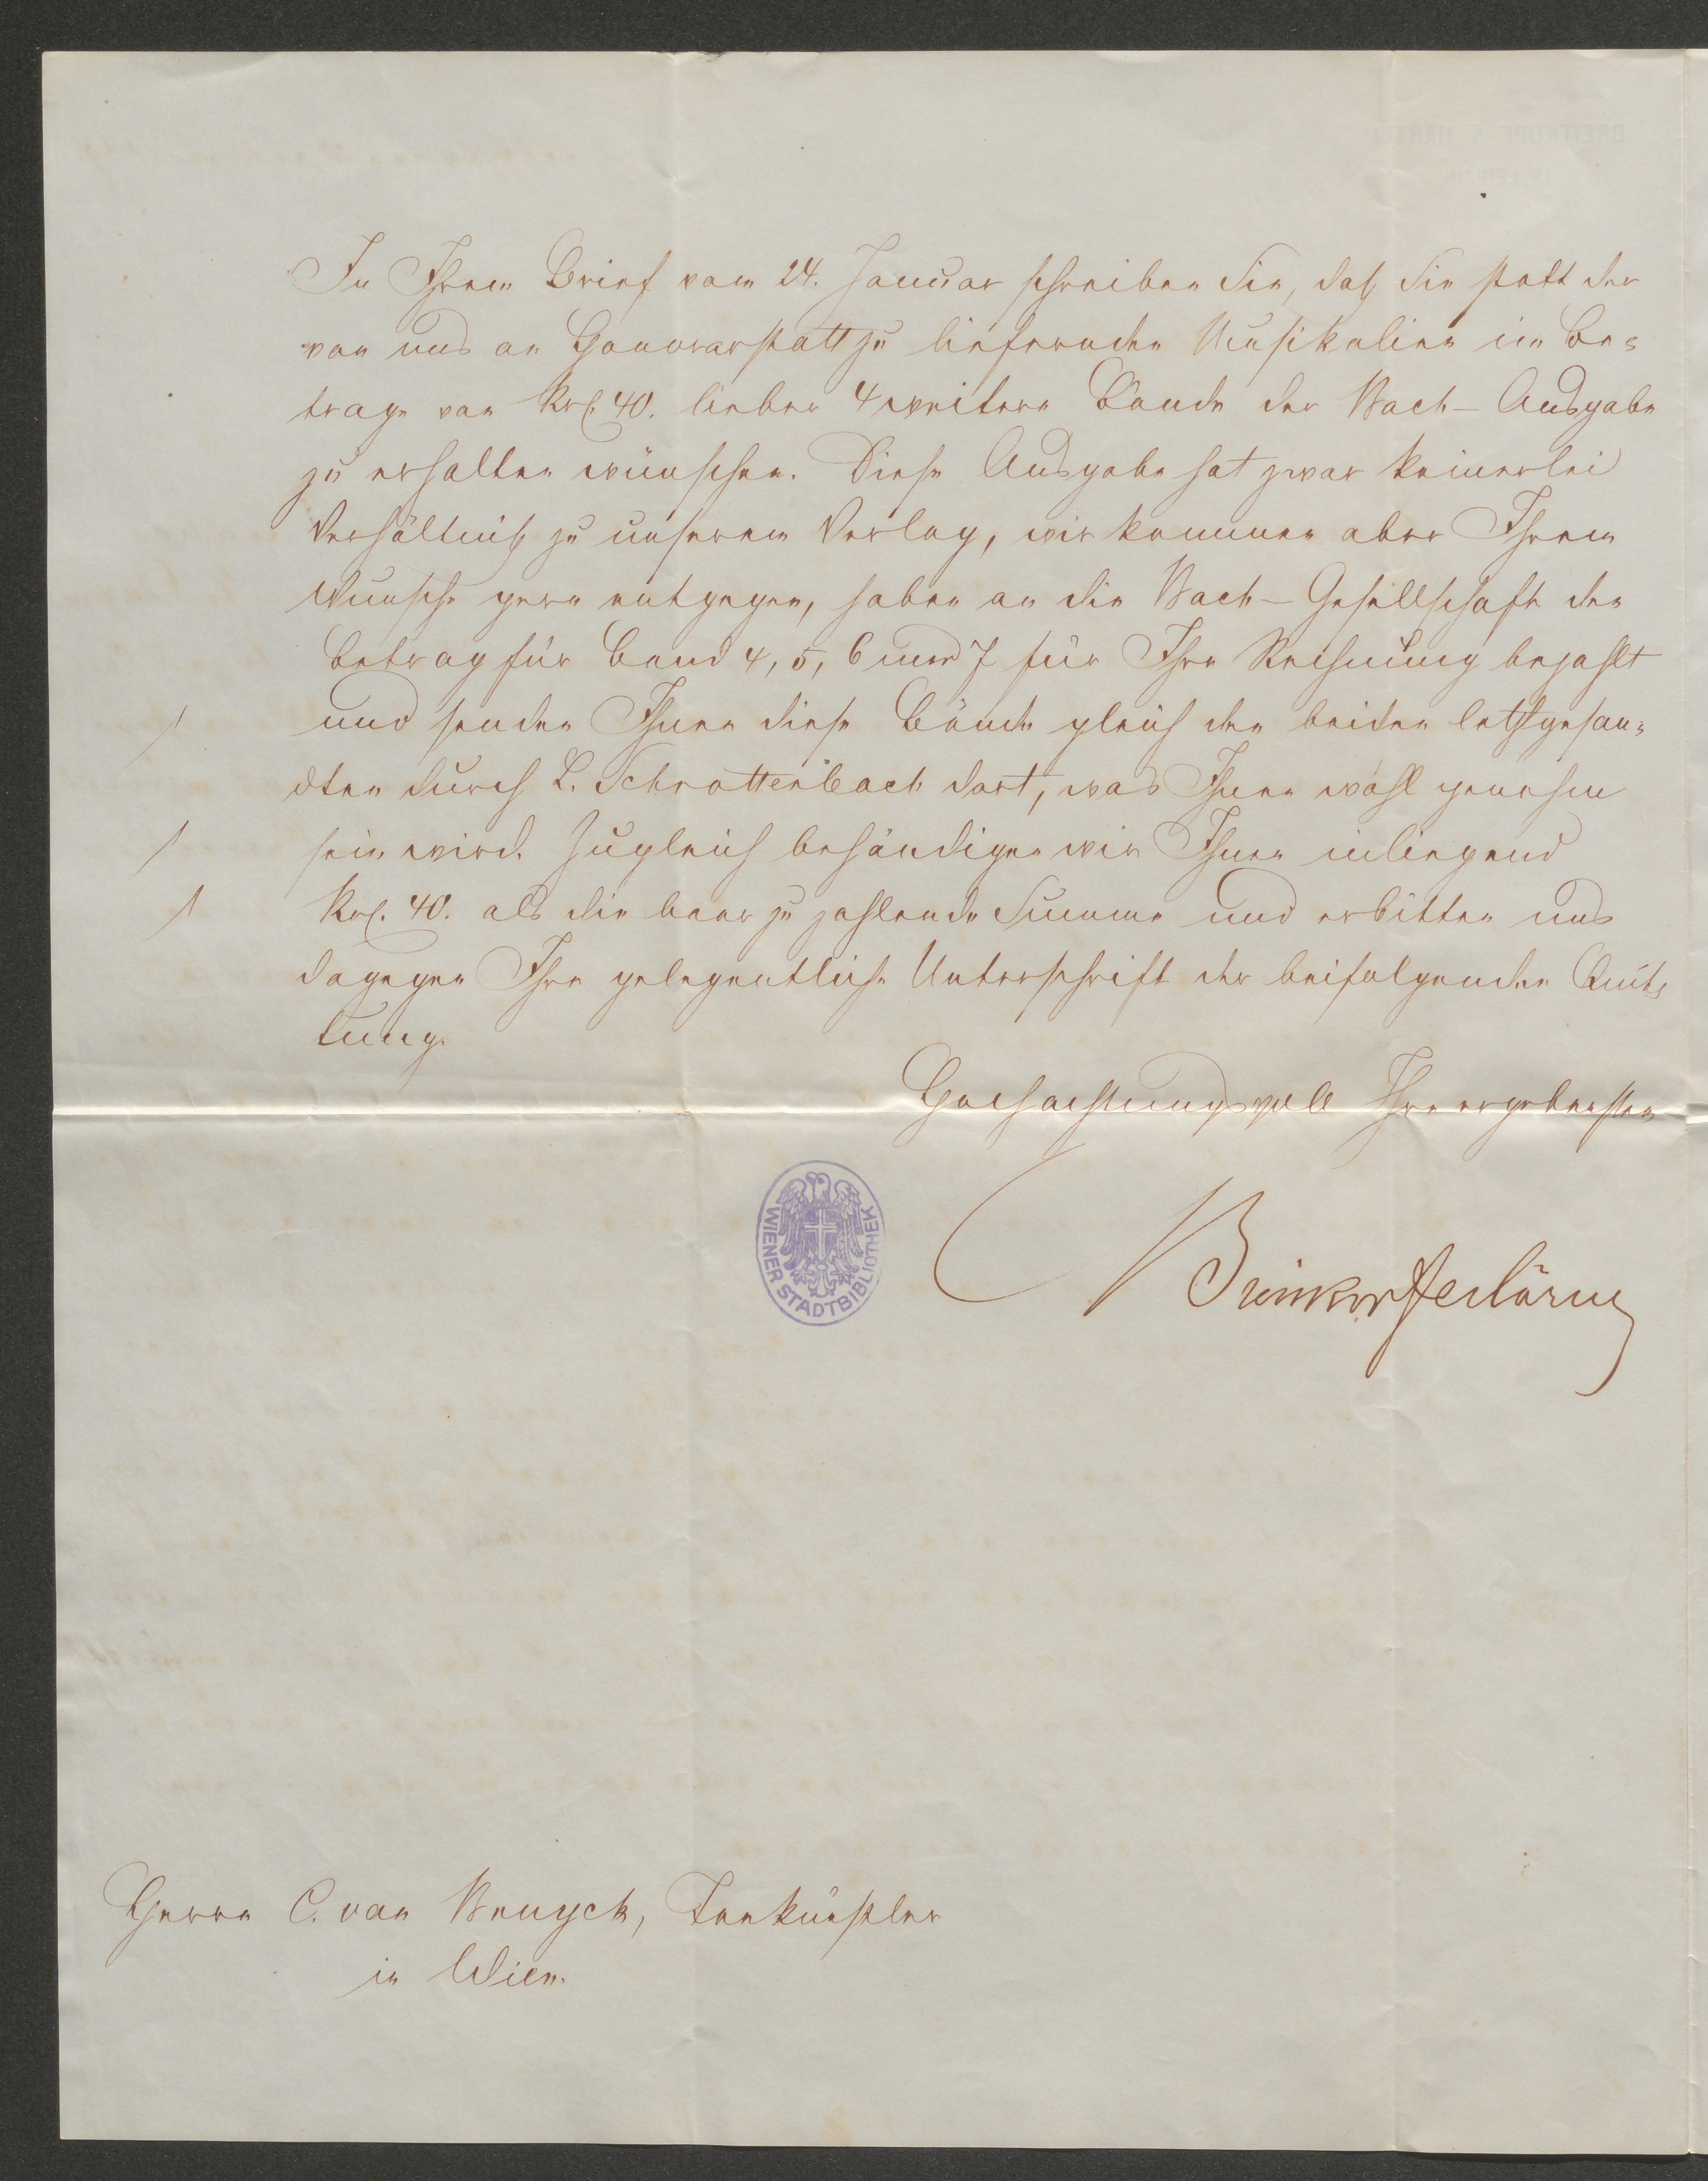 In Ihrem Brief vom 24. Januar schreiben Sie, daß Sie statt der
von uns an Honorarstatt zu liefernden Musikalien im Be-
trage von Rthl. 40. lieber 4 weitere Bände der Bach-Ausgabe
zu erhalten wünschen. Diese Ausgabe hat zwar keinerlei
Verhältniß zu unserem Verlag, wir kommen aber Ihrem
Wunsche gern entgegen, haben an die Bach-Gesellschaft den
Betrag für Band 4, 5, 6 und 7 für Ihre Rechnung bezahlt
und senden Ihnen diese Bände gleich den beiden letztgesan-
dten durch L. Schrottenbach dort, was Ihnen wohl genehm
sein wird. Zugleich behändigen wir Ihnen inliegend
Rthl. 40. als die baar zu zahlende Summe und erbitten uns
dagegen Ihre gelegentliche Unterschrift der beifolgenden Quit-
tung.
Hochachtungsvoll Ihre ergebensten
Breitkopf & Härtel
WIENER STADTBIBLIOTHEK
Herrn C. van Bruyck, Tonkünstler
in Wien.